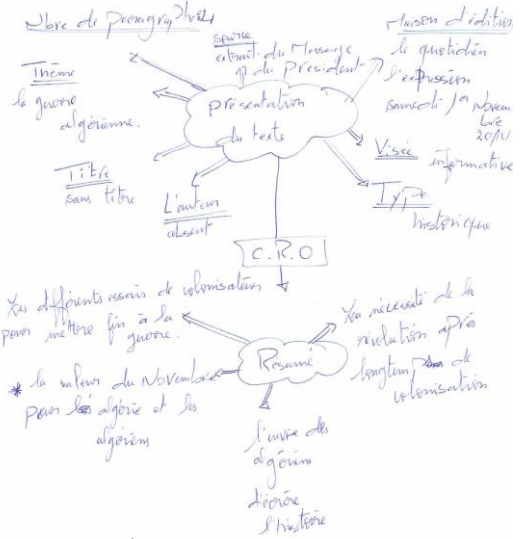 Nbre de paragraphe
source
extrait du Message
du President
Maison d'édition
le quotidien
l'expression
samedi 1er Novem
bre
Thème
la guerre
algérienne.
présentation
du texte
Visée informative
Titre
sans titre
L'auteur
absent
Type
historique
C.R.O
Les différents essais de colonisateur
pour mettre fin à la
guerre.
La nécessité de la
révolution après
longtemps de
colonisation
Resumé
* la valeur du Novembre
pour les algérie et les
algériens
l'envie des
algériens
d'écrire
l'histoire